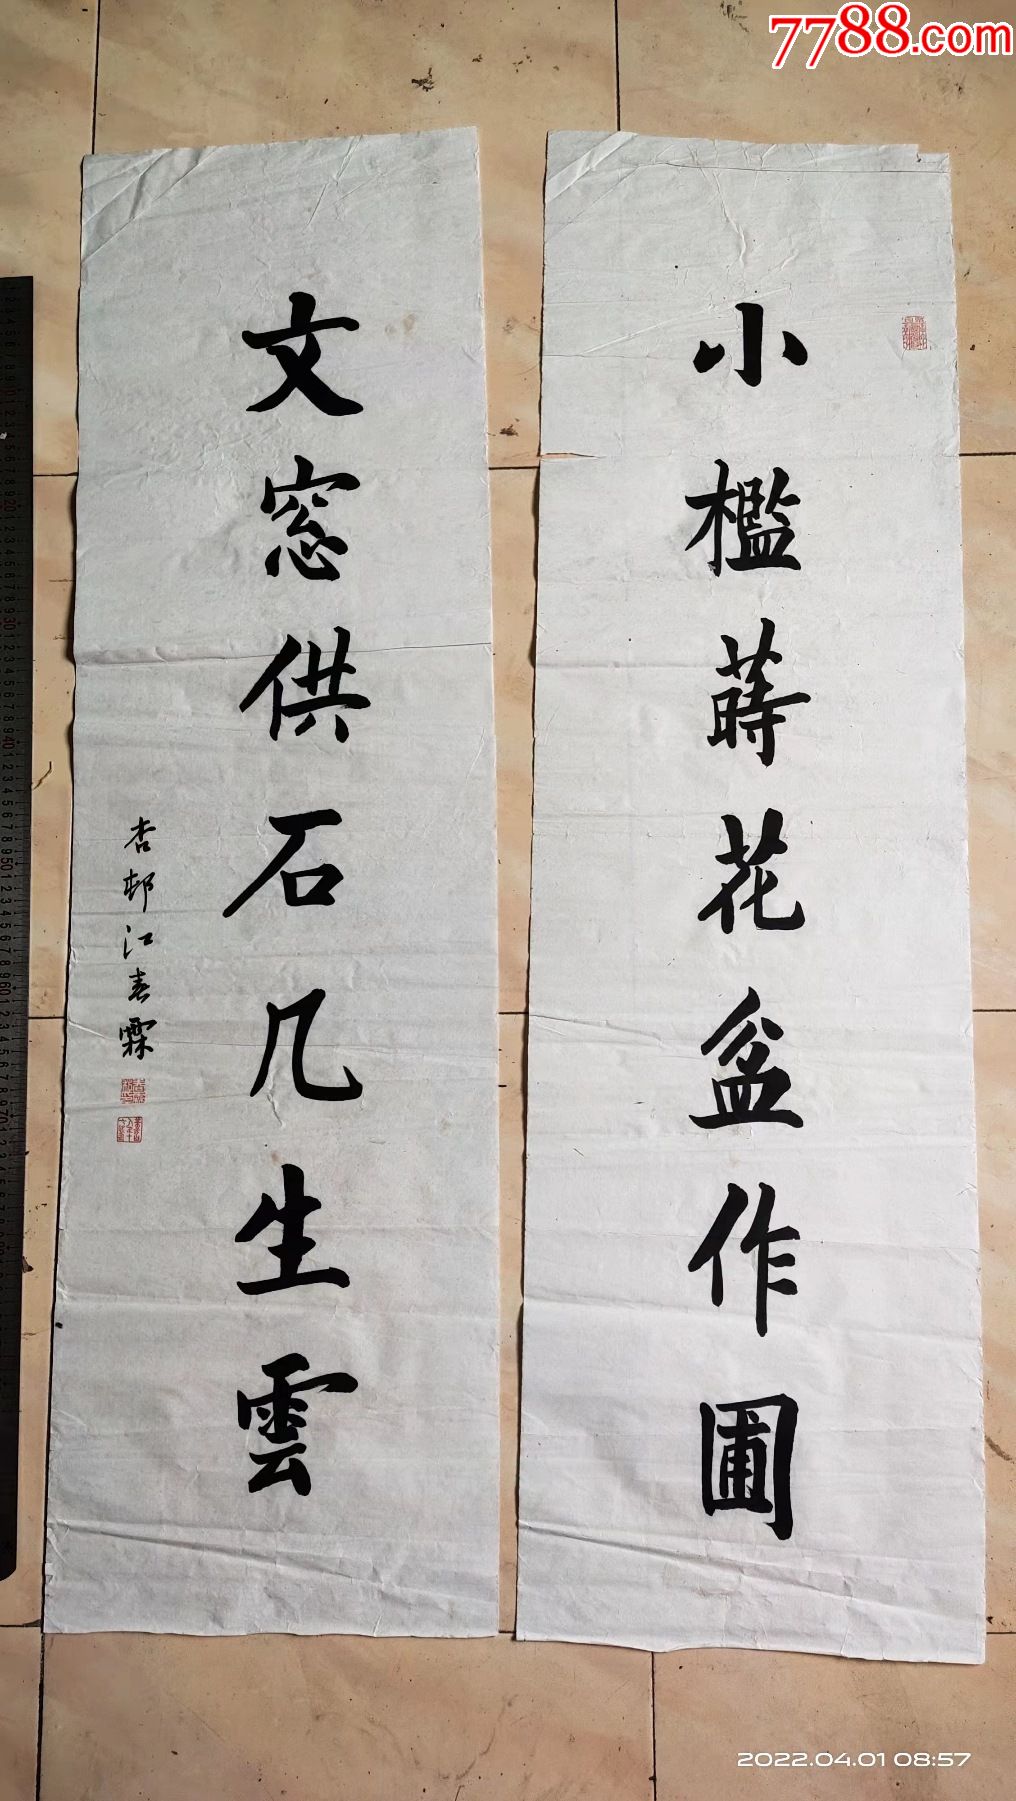 7788.com
小檻蒔花盆作圃
文窓供石几生雲
杏邨江春霖
2022.04.01 08:57